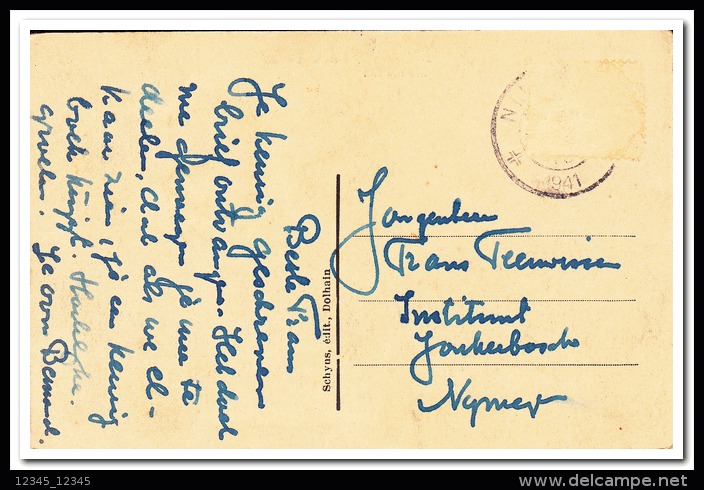 Beste Frans
Je keurig geschreven
brief ontvangen. Het doet
me genoegen je mee te
deelen, dat als we el-
kaar zien, je een keurig
boek krijgt. Hartelijke
groeten. Je oom Bernard.
Schyns, édit., Dolhain
Jongenheer
Frans Teeuwissen
Instituut
Jonkerbosch
Nymegen
1941
12345_12345
www.delcampe.net